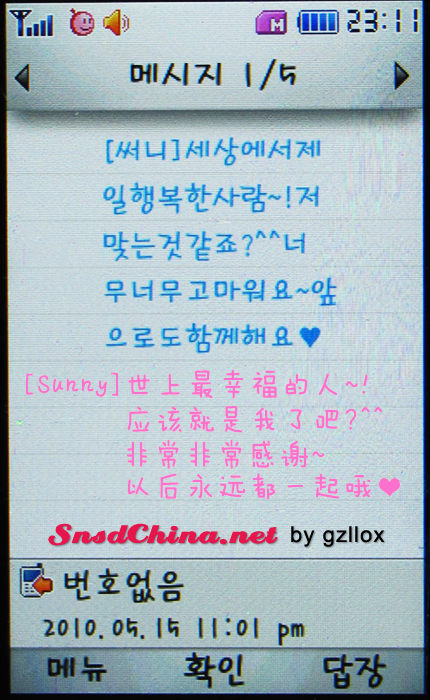 23:11
메시지 1/5
[써니]세상에서제
일행복한사람~!저
맞는것같죠?^^너
무너무고마워요~앞
으로도함께해요♥
[Sunny]世上最幸福的人~!
应该就是我了吧?^^
非常非常感谢~
以后永远都一起哦❤
SnsdChina.net by gzllox
번호없음
2010.05.15 11:01 pm
메뉴 확인 답장